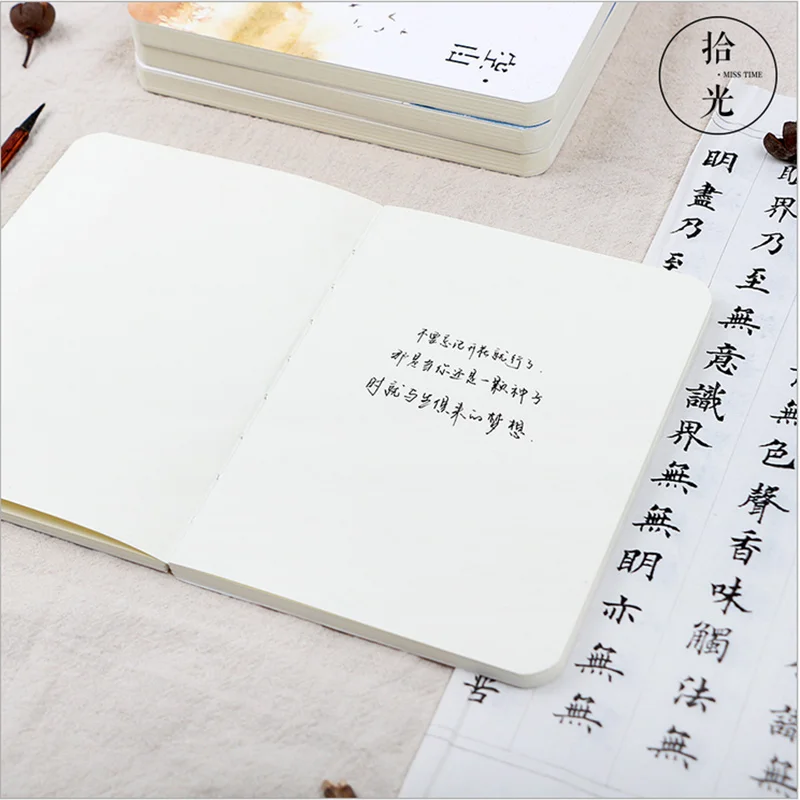 空山
拾光
· MISS TIME
不要忘记开花就行了.
那是当你还是一颗种子
时就与生俱来的梦想.
識無
無色聲香味觸法無
界乃至無意識界無無明亦無無
明盡乃至
苦